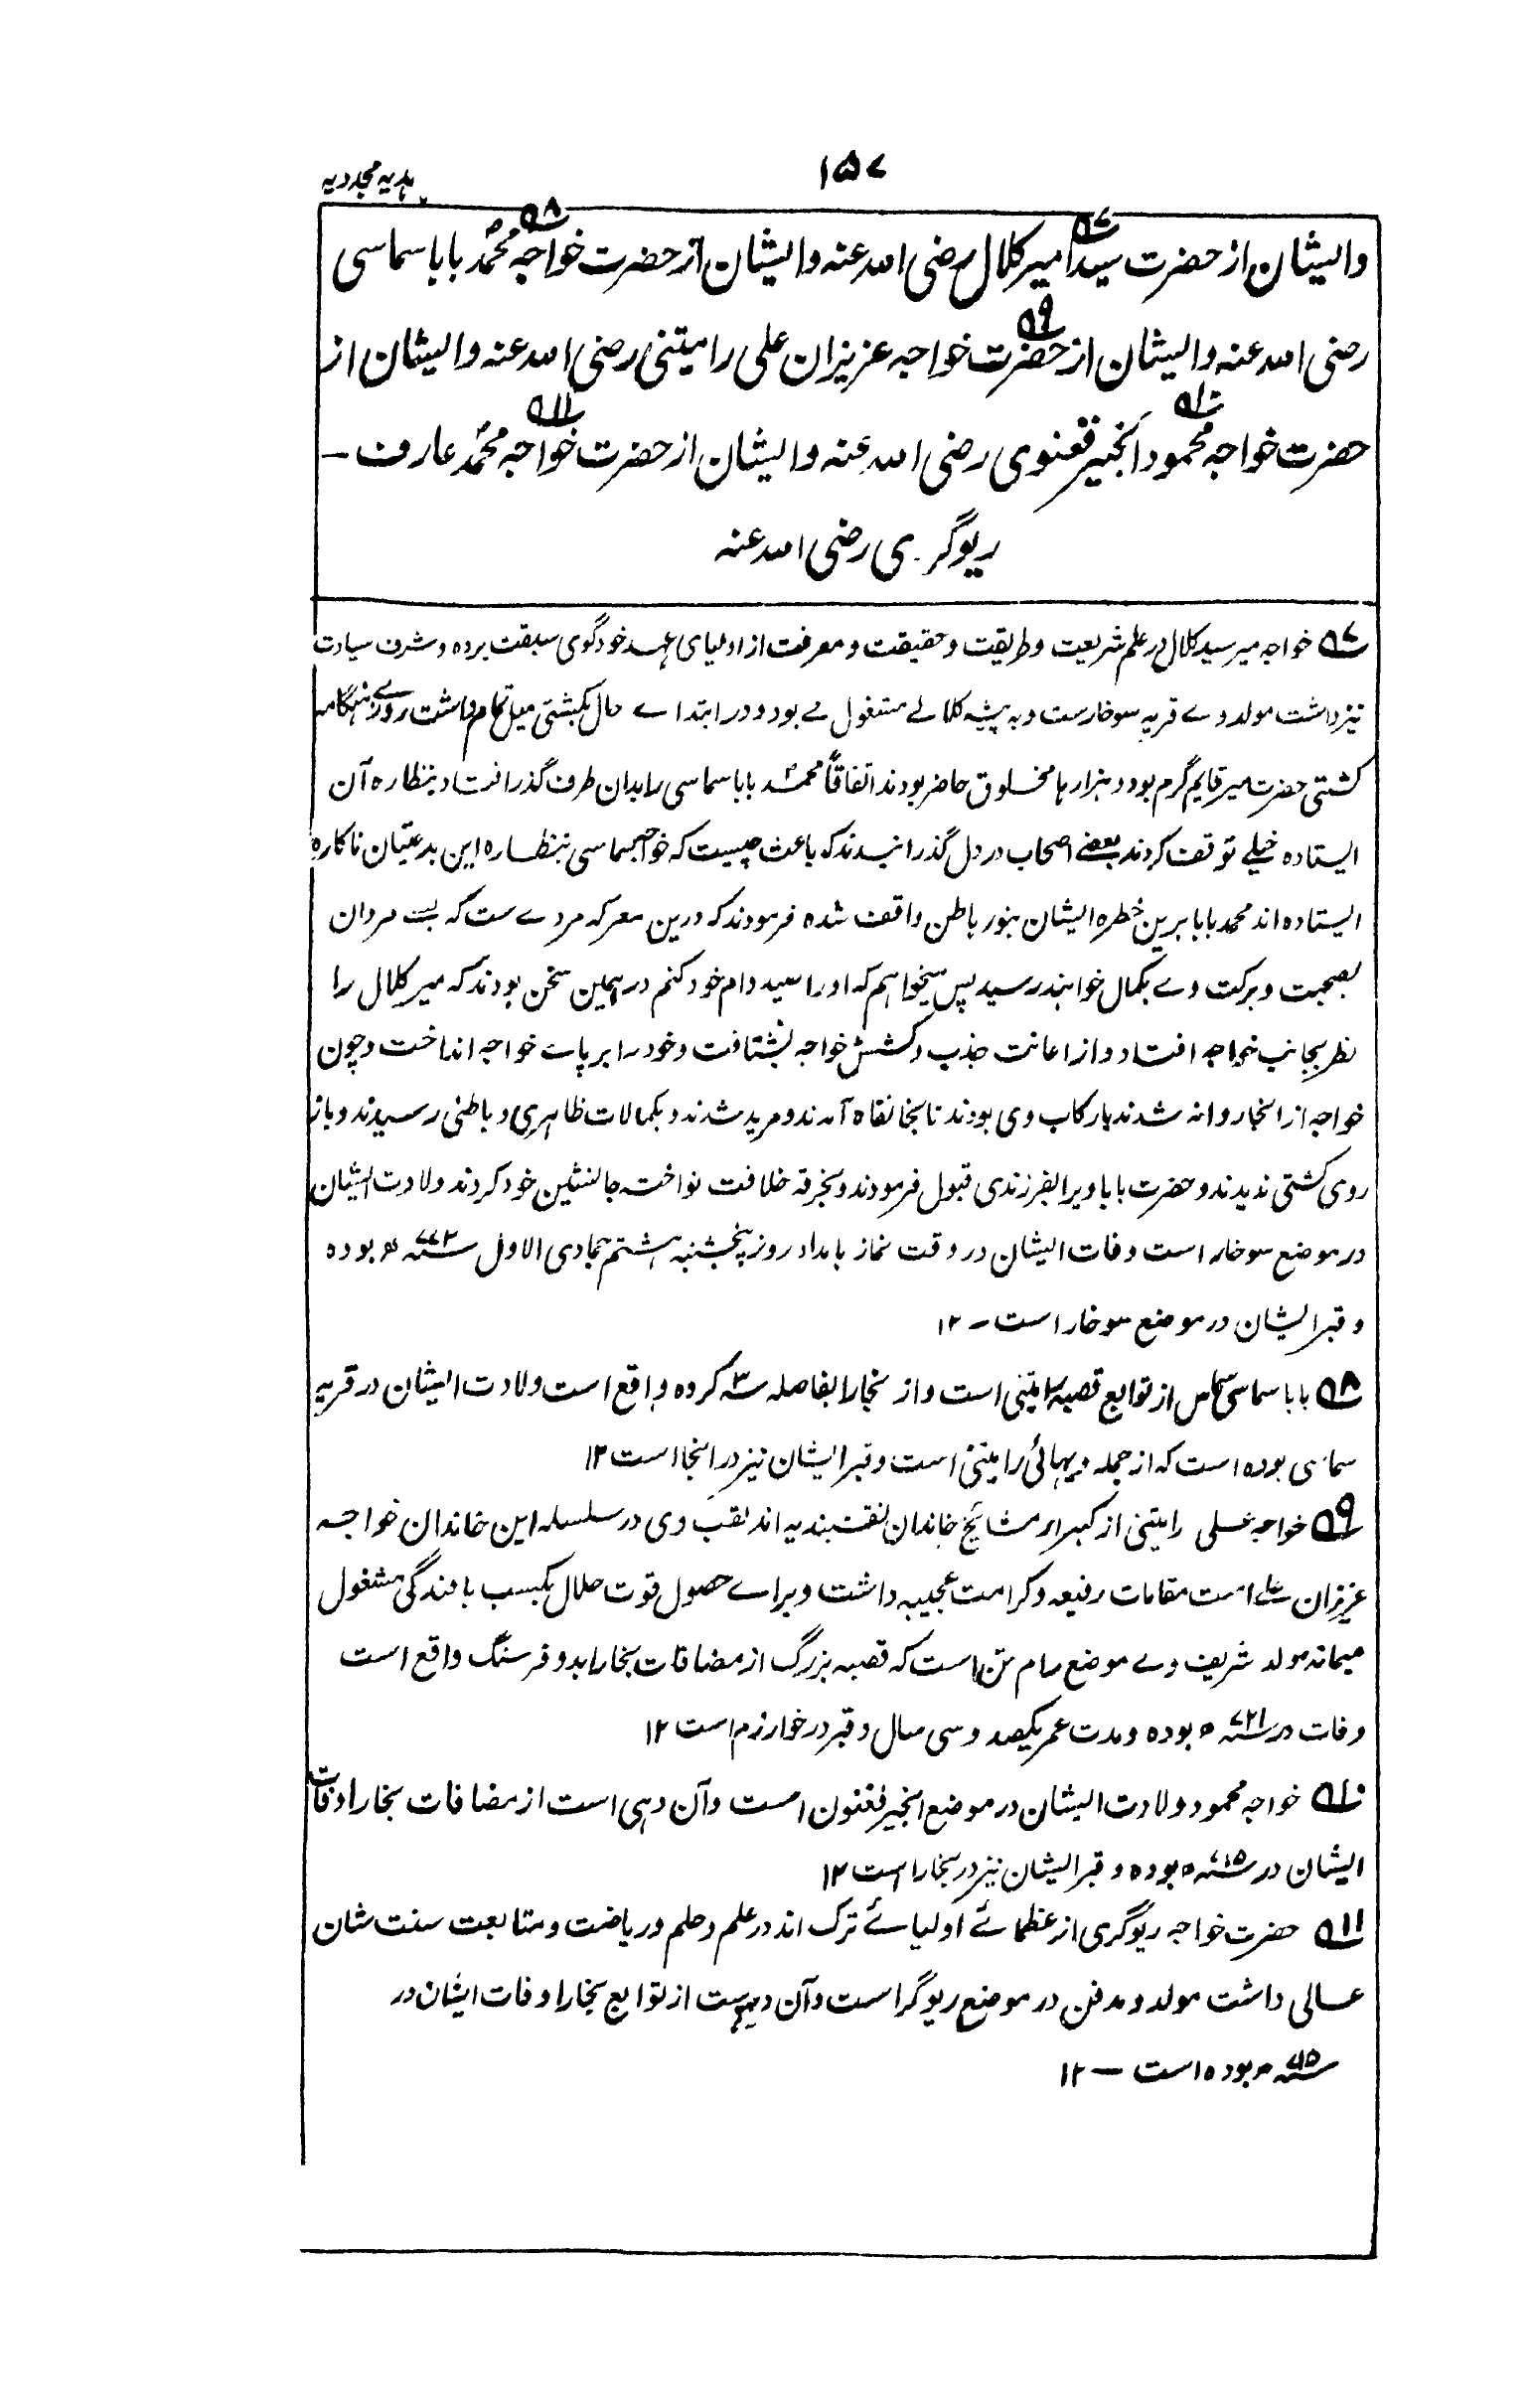 ہدیہ مجددیہ
۱۵۷
وایشان از حضرت سید امیر کلال رضی اللہ عنہ وایشان از حضرت خواجہ محمد بابا سماسی
رضی اللہ عنہ وایشان از حضرت خواجہ عزیزان علی رامیتنی رضی اللہ عنہ وایشان از
حضرت خواجہ محمود انجیر فغنوی رضی اللہ عنہ وایشان از حضرت خواجہ محمد عارف –
ریوگری رضی اللہ عنہ
۵۷ خواجہ میر سید کلال در علم شریعت و طریقت و حقیقت و معرفت از اولیای عہد خود گوی سبقت بردہ و شرف سیادت
نیز داشت مولد وے قریہ سوخارست و بہ پیشہ کلالے مشغول مے بود و در ابتداے حال بکشتی میل تمام داشت روزے ہنگامہ
کشتی حضرت میر قایم گرم بود و ہزارہا مخلوق حاضر بودند اتفاقاً محمد بابا سماسی را بدان طرف گذر افتاد بنظارہ آن
ایستادہ خیلے توقف کردند بعضے اصحاب در دل گذرانیدند کہ باعث چیست کہ خواجہ سماسی بنظارہ این بدعتیان ناکارہ
ایستادہ اند محمد بابا برین خطرہ ایشان بنور باطن واقف شدہ فرمودند کہ درین معرکہ مردے ست کہ بسے مردان
بصحبت و برکت وے بکمال خواہند رسید پس میخواہم کہ او را صید دام خود کنم در ہمین سخن بودند کہ میر کلال را
نظر بجانب خواجہ افتاد و از اعانت جذب و کشش خواجہ بشتافت و خود را بر پاے خواجہ انداخت و چون
خواجہ از انجا روانہ شدند ہارکاب وی بودند تا بخانقاہ آمدند و مرید شدند و بکمالات ظاہری و باطنی رسیدند و باز
روی کشتی ندیدند و حضرت بابا ویرا بفرزندی قبول فرمودند و بخرقہ خلافت نواختہ جانشین خود کردند ولادت ایشان
در موضع سوخار است وفات ایشان در وقت نماز بامداد روز پنجشنبہ ہشتم جمادی الاول سنہ ۷۷۲ھ بودہ
و قبر ایشان در موضع سوخار است – ۱۲
۵۸ بابا سماسی سماس از توابع قصبہ رامیتنی است و از بخارا بفاصلہ سہ ۳ کردہ واقع است ولادت ایشان در قریہ
سماسی بودہ است کہ از جملہ دیہائی رامیتنی است و قبر ایشان نیز در انجا است ۱۲
۵۹ خواجہ علی رامیتنی از کبراء مشائخ خاندان نقشبندیہ اند لقب وی در سلسلہ این خاندان خواجہ
عزیزان علی است مقامات رفیعہ و کرامت عجیبہ داشت و براے حصول قوت حلال بکسب بافندگی مشغول
میماند مولد شریف وے موضع رام تن است کہ قصبہ بزرگ از مضافات بخارا بدو فرسنگ واقع است
وفات در سنہ ۷۲۱ھ بودہ و مدت عمر یکصد و سی سال و قبر در خوارزم است ۱۲
۵۱۰ خواجہ محمود ولادت ایشان در موضع انجیر فغنون است وآن دہی است از مضافات بخارا وفات
ایشان در سنہ ۷۱۵ھ بودہ و قبر ایشان نیز در بخارا است ۱۲
۵۱۱ حضرت خواجہ ریوگری از عظمائے اولیائے ترک اند در علم و حلم و ریاضت و متابعت سنت شان
عالی داشت مولد و مدفن در موضع ریوگر است وآن دہیست از توابع بخارا وفات ایشان در
سنہ ۷۱۵ھ بودہ است – ۱۲